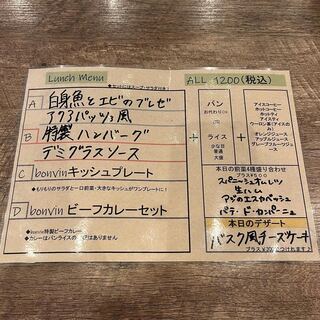 Lunch Menu
ALL 1200(税込)
◆セットにはスープ・サラダ付き!
A 白身魚とエビのブレゼ
アクアパッツァ風
B 特製ハンバーグ
デミグラスソース
C bonvinキッシュプレート
◆もりもりのサラダと一口前菜・大きなキッシュがワンプレートに!
D bonvin ビーフカレーセット
◆bonvin特製ビーフカレー
◆カレーはパンライスの
はありません
+
パン
お代わり
ライス
少な目
普通
大盛
+
アイスコーヒー
ホットコーヒー
ホットティ
アイスティ
ウーロン茶(アイスのみ)
オレンジジュース
アップルジュース
グレープフルーツジュース
本日の前菜4種盛り合わせ
プラス¥500
スパニッシュオムレツ
生ハム
アジのエスカベッシュ
パテ・ド・カンパーニュ
本日のデザート
バスク風チーズケーキ
プラス¥300につけれます♪